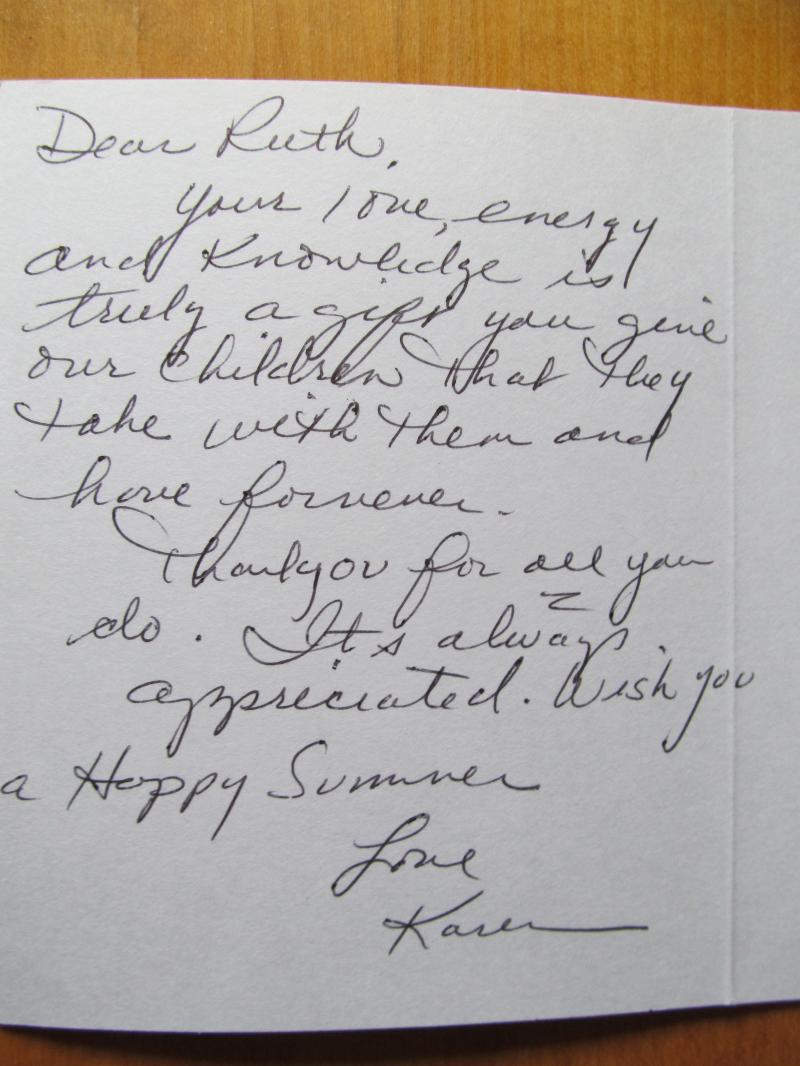 Dear Ruth,
Your love, energy
and Knowledge is
truly a gift you give
our children that they
take with them and
have fornever.
Thankyou for all you
do. It's always
appreciated. Wish you
a Happy Summer
Love
Karen